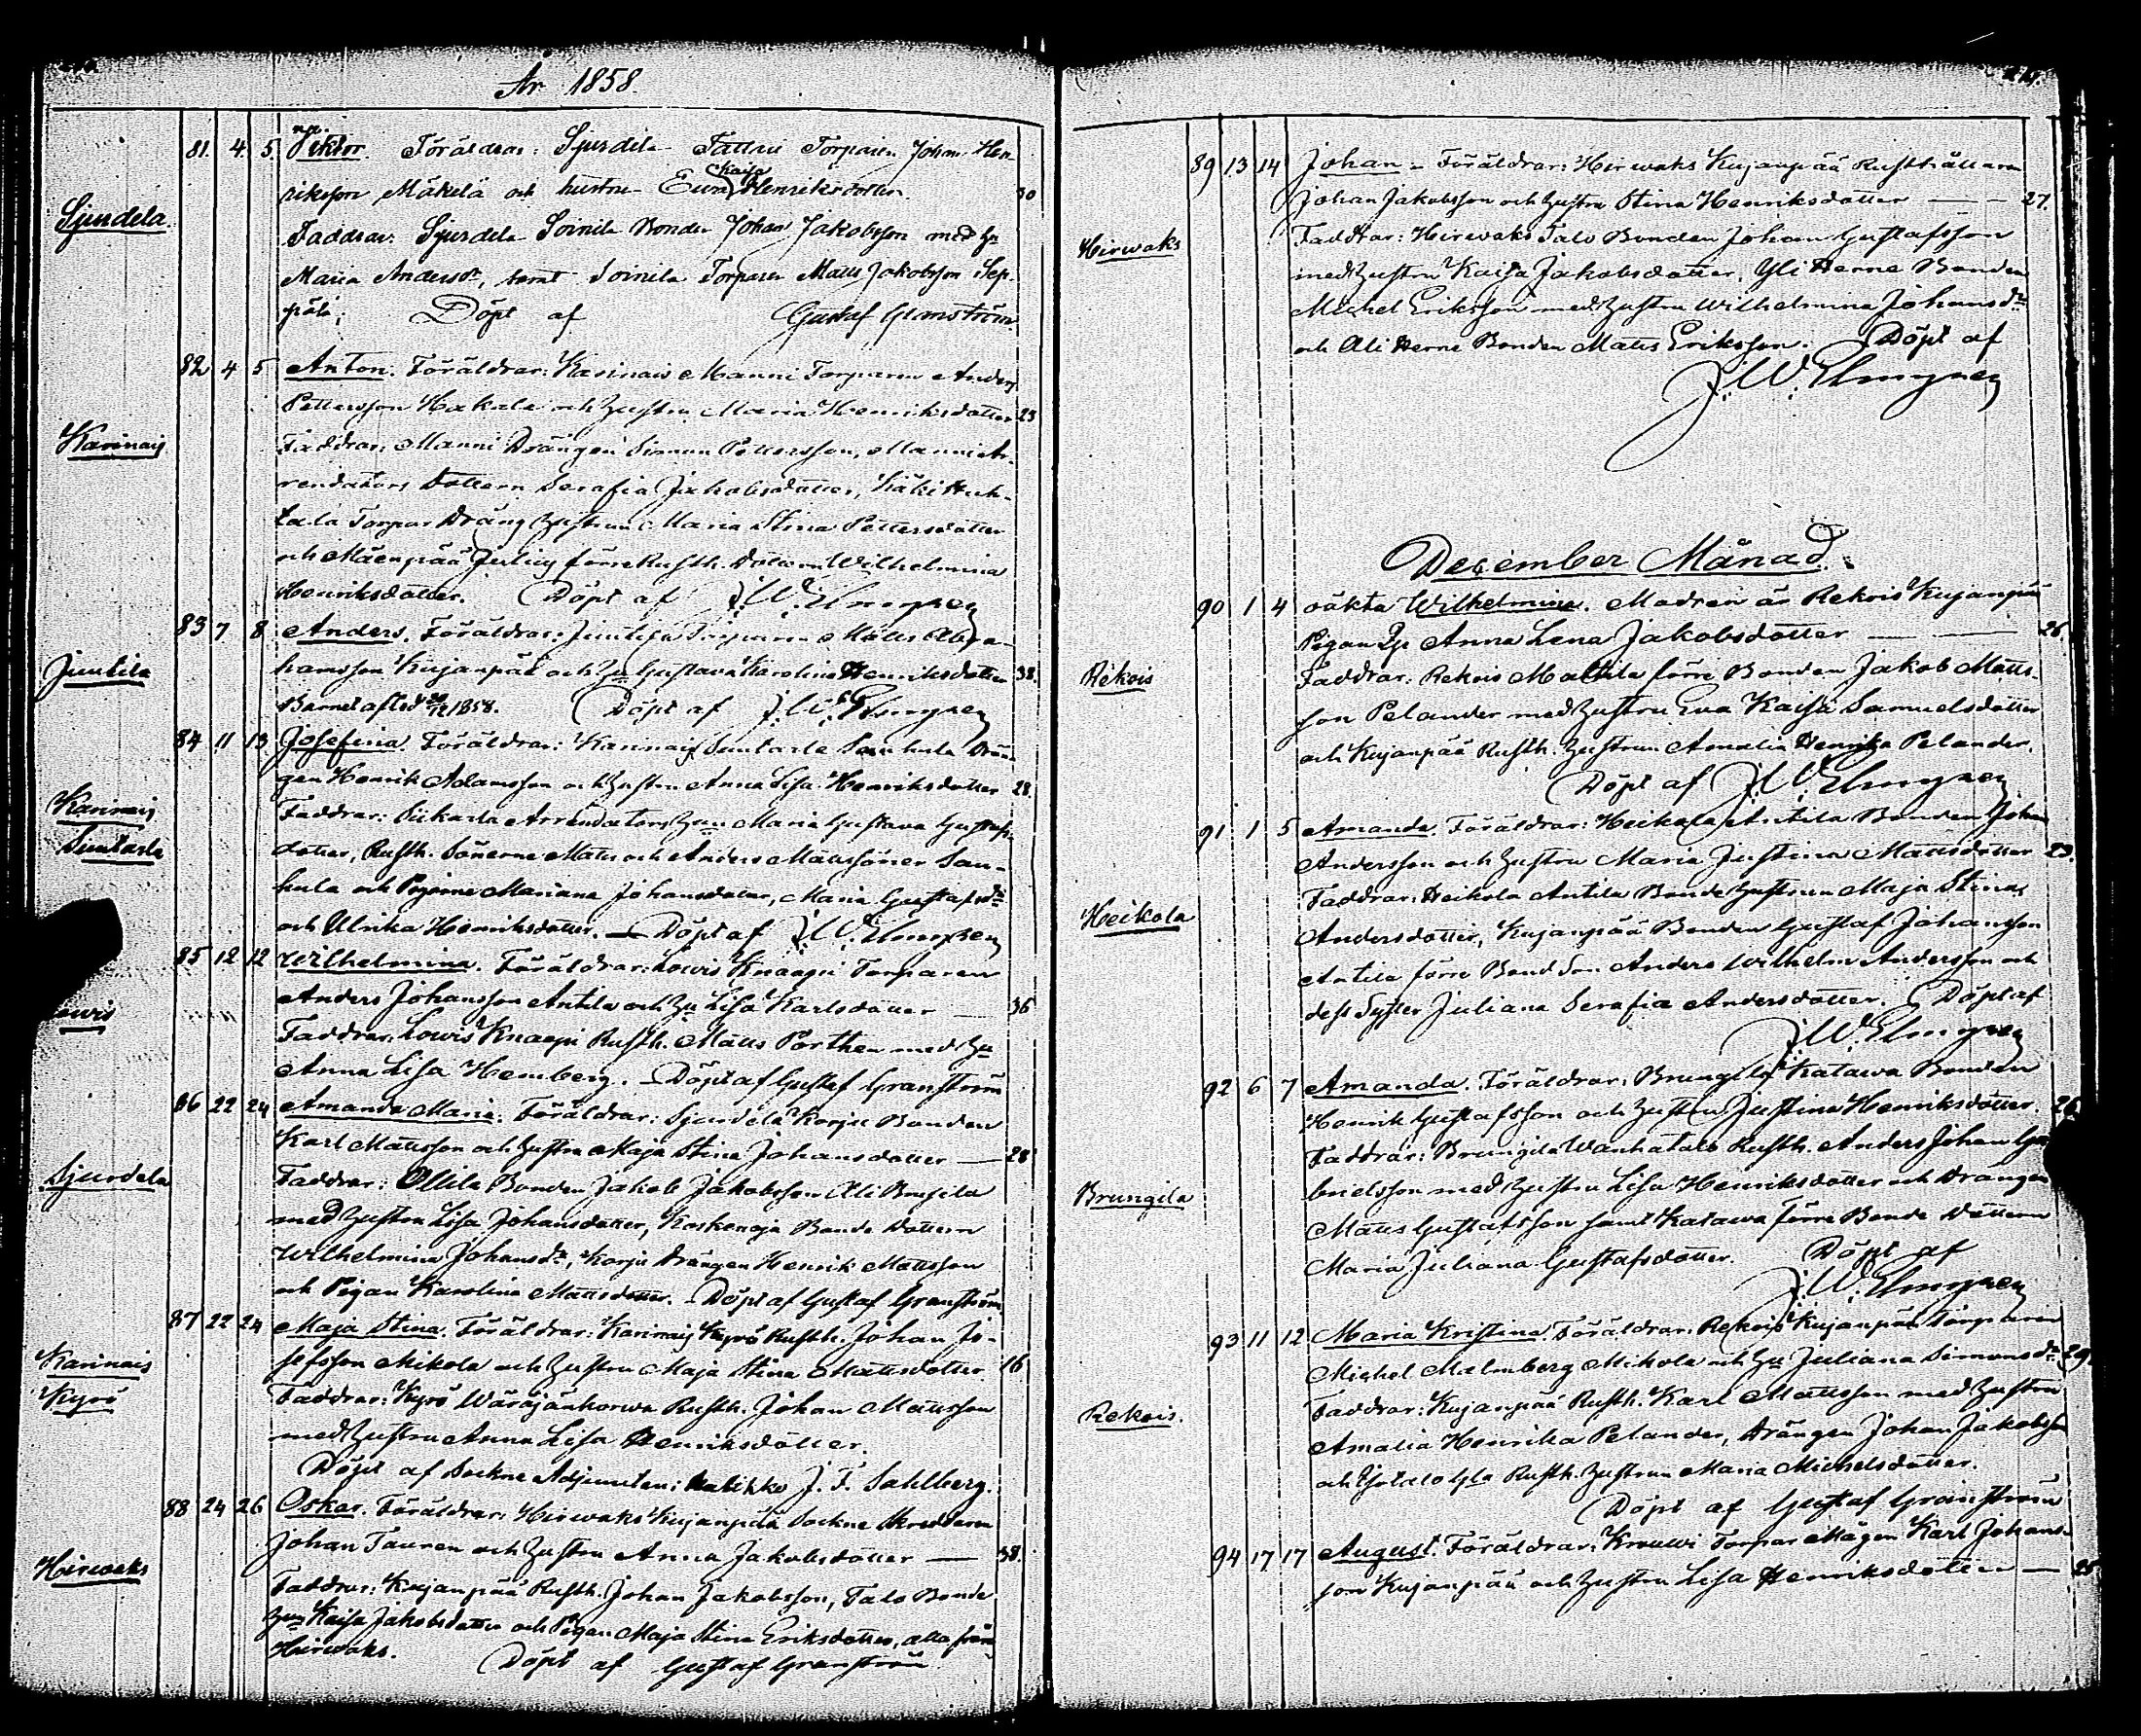 År 1858.
81. 4. 5. Viktor. Föräldrar: Sjurdela Tattari Torparen Johan Hen-
Sjurdela. riksson Mäkelä och hustru Eva Kaisa Henriksdotter. 30
Faddrar: Sjurdela Soinila Bonden Johan Jakobsson med hu
Maria Andersdr, samt Soinila Torparen Matts Jakobsson Sep-
pälä; Döpt af Gustaf Granström
82 4 5 Anton. Föräldrar: Karinais Manni Torparen Anders
Karinais Pettersson Hakala och hustru Maria Henriksdotter 23
Faddrar: Manni Drängen Simon Pettersson, Manni Ar-
rendators Dottern Serafia Jakobsdotter, Huh-
tala Torpar Dräng hustrun Maria Stina Pettersdotter
och Mäenpää förre Rusth. Dottern Wilhelmina
Henriksdotter. Döpt af J.W. Elmgren
83 7 8 Anders. Föräldrar: Juntila Torparen Matts Abra-
Juntila hamsson Kujanpää och hu Gustava Karolina Henriksdotter 38.
Barnet afled 12 1858. Döpt af J.W. Elmgren
84 11 13 Josefina. Föräldrar: Karinais Suutarla Sauhula Drän-
gen Henrik Adamsson och hustru Anna Lisa Henriksdotter 28.
Karinais Faddrar: Arrendators hun Maria Gustava Gustafs-
Suutarla dotter, Rusth. Sönerne Matts och Anders Mattssöner Sau-
hula och Pigorne Mariana Johansdotter, Maria Gustafsdr
och Ulrika Henriksdotter. — Döpt af J.W. Elmgren
85 12 12 Wilhelmina. Föräldrar: Lowis Knaapi Torparen
owis Anders Johansson Antila och hu Lisa Karlsdotter — 36
Faddrar: Lowis Knaapi Rusth. Matts Porthen med hu
Anna Lisa Hemberg. — Döpt af Gustaf Granström
86 22 24 Amanda Maria. Föräldrar: Sjurdela Korju Bonden
Karl Mattsson och hustru Maja Stina Johansdotter — 28
Sjurdela Faddrar: Ollila Bonden Jakob Jakobsson Ali
med hustru Lisa Johansdotter, Koskenoja Bonde Dottern
Wilhelmina Johansdr, Korju Drängen Henrik Mattsson
och Pigan Karolina Mattsdotter. — Döpt af Gustaf Granström
87 22 24 Maja Stina. Föräldrar: Karinais Kyrö Rusth. Johan Jo-
Karinais sefsson Mikola och hustru Maja Stina Mattsdotter. 16
Kyrö Faddrar: Kyrö Wäräjänkorwa Rusth. Johan Mattsson
med hustru Anna Lisa Henriksdotter.
Döpt af Sockne Adjuncten i Halikko J. F. Sahlberg.
88 24 26 Oskar. Föräldrar: Hirwaks Kujanpää Sockne Skreddaren
Johan Tauren och hustru Anna Jakobsdotter — 38.
Hirwaks Faddrar: Kujanpää Rusth. Johan Jakobsson, Talo Bonde
hun Kaisa Jakobsdotter och Pigan Maja Stina Eriksdotter, alla från
Hirwaks. Döpt af Gustaf Granström
89 13 14 Johan. Föräldrar: Hirwaks Kujanpää Rusthållaren
Johan Jakobsson och hustru Stina Henriksdotter — — 27.
Hirwaks Faddrar: Hirwaks Talo Bonden Johan Gustafsson
med hustru Kaisa Jakobsdotter, Yli Herne Bonden
Michel Eriksson med hustru Wilhelmina Johansdr
och Ali Herne Bonden Matts Eriksson. Döpt af
J.W. Elmgren
December Månad.
90 1 4 oäkta Wilhelmina. Modren är Rekois Kujanpää
Pigan Anna Lena Jakobsdotter — — 26.
Rekois Faddrar: Rekois Mattila förre Bonden Jakob Matts-
son Pelander med hustru Eva Kaisa Samuelsdotter
och Kujanpää Rusth. hustrun Amalia Henrika Pelander.
Döpt af J.W. Elmgren
91 1 5 Amanda. Föräldrar: Heikola Antila Bonden Johan
Andersson och hustru Maria Justina Mattsdotter 23.
Heikola Faddrar: Heikola Antila Bonde hustrun Maja Stina
Andersdotter, Kujanpää Bonden Gustaf Johansson
Antila förre Bond Son Anders Wilhelm Andersson och
dess Syster Juliana Serafia Andersdotter. Döpt af
J.W. Elmgren
92 6 7 Amanda. Föräldrar: Brungila Katawa Bonden
Henrik Gustafsson och hustru Justina Henriksdotter. 26
Faddrar: Brungila Wanhatalo Rusth. Anders Johan Ga-
Brungila brielsson med hustru Lisa Henriksdotter och Drängen
Matts Gustafsson samt Katawa förre Bonde Dottern
Maria Juliana Gustafsdotter. Döpt af
J.W. Elmgren
93 11 12 Maria Kristina. Föräldrar: Rekois Kujanpää Torparen
Michel Malmberg Mikola och hu Juliana Simonsdr 29.
Faddrar: Kujanpää Rusth. Karl Mattsson med hustru
Rekois. Amalia Henrika Pelander, Drängen Johan Jakobsson
och Rusth. hustrun Maria Michelsdotter.
Döpt af Gustaf Granström
94 17 17 August. Föräldrar: Krouwi Torpar Mågen Karl Johans-
son Kujanpää och hustru Lisa Henriksdotter — 25